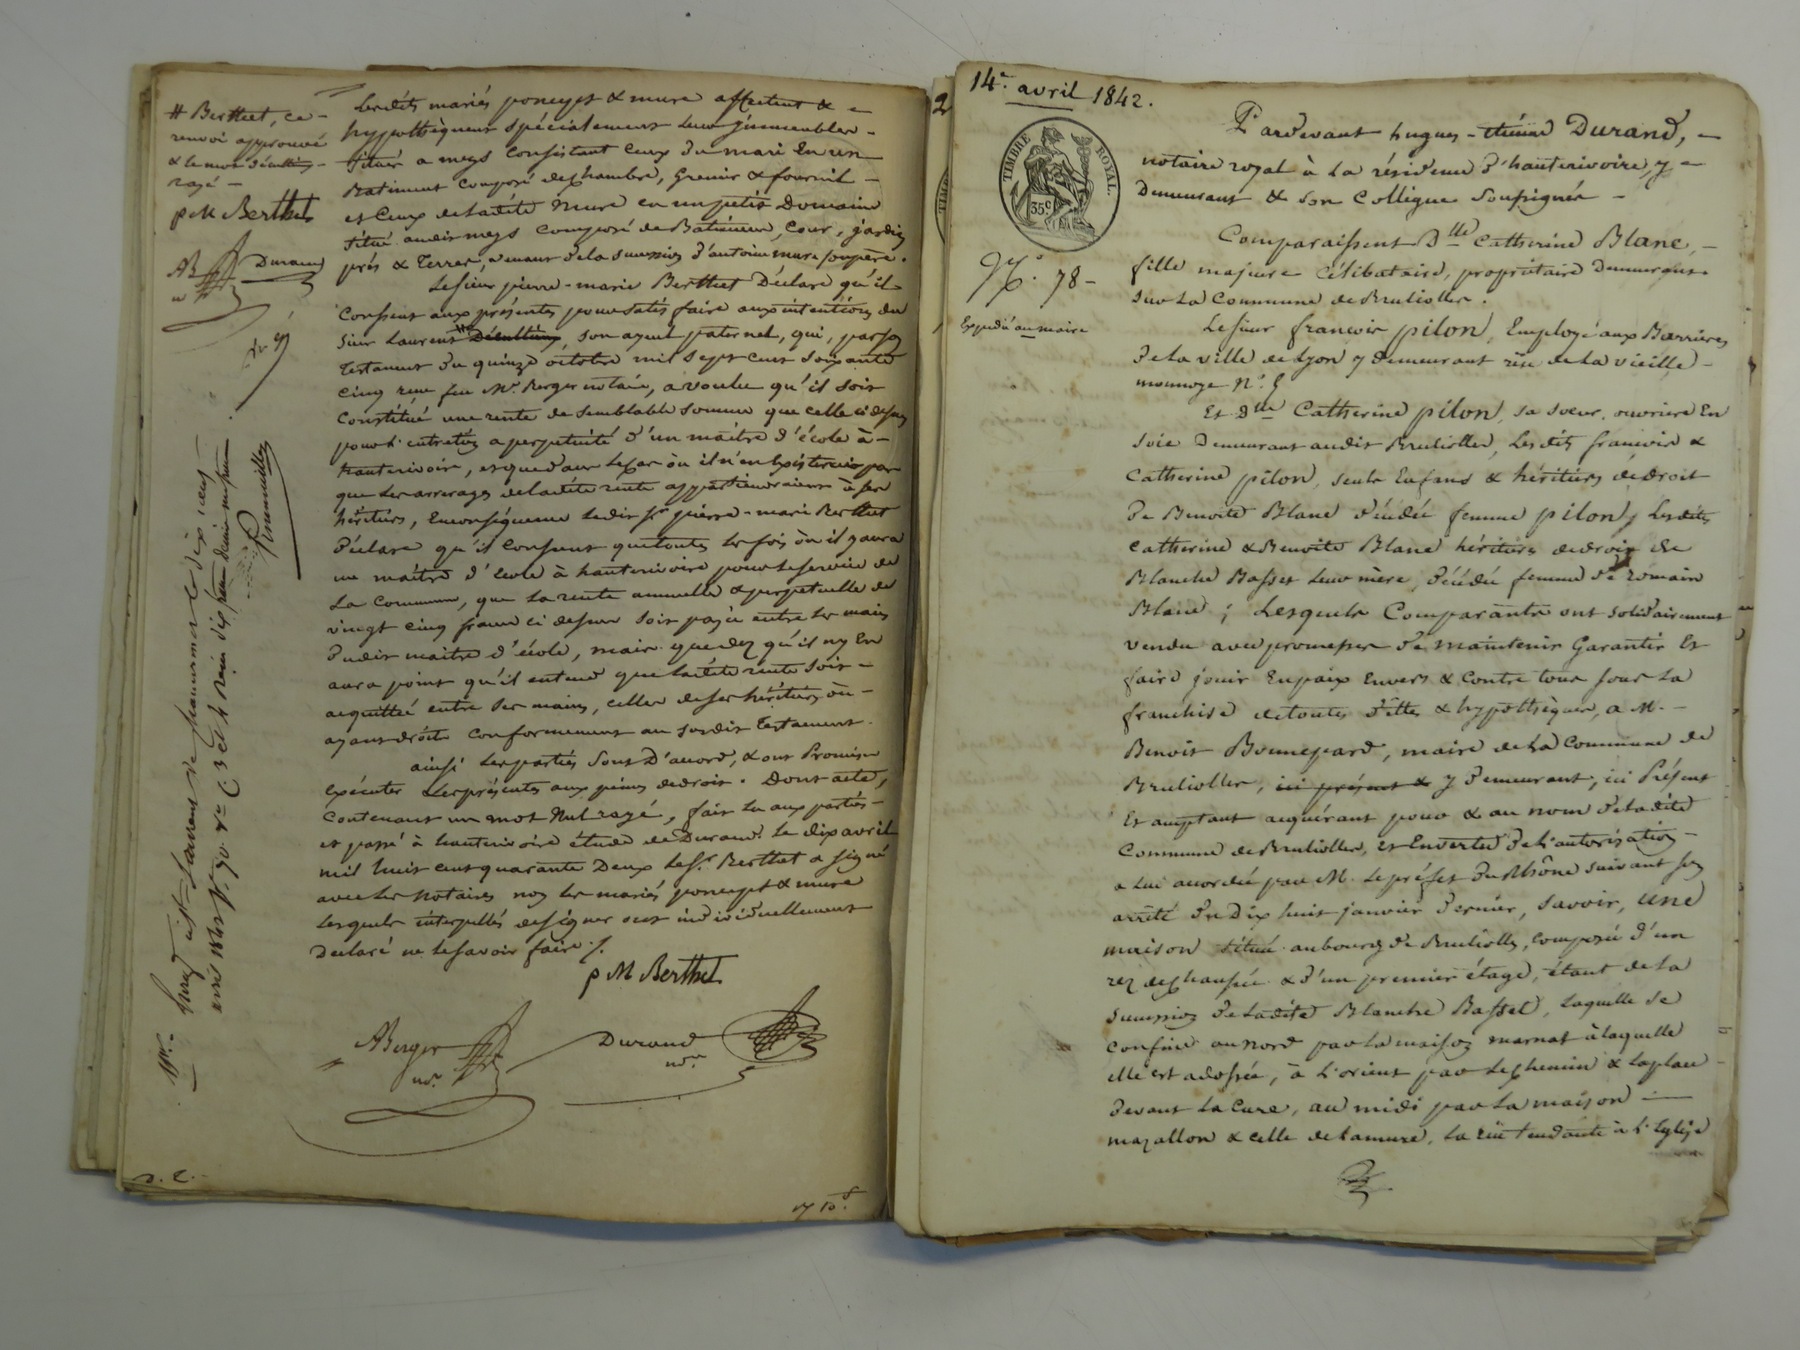 # Berthet, ce
renvoi approuvé
& le mot
rayé
p M Berthet
AB Durand
Lesdits mariés poncept & mure affectent &
hypothèquent spécialement leurs jmmeubles
situés a meys consistant Ceux du mari En un
Batiment Composé de chambre, Grenier & fournil
et Ceux de ladite Mure en un petit Domaine
situé audit meys Composé de Batiment, Cour, jardin
prés & terres, venant de la succession d'antoine mure son père.
Le sieur pierre-marie Berthet Déclare qu'il
Consent aux présentes pour satisfaire aux intentions du
sieur Laurent # son ayeul paternel, qui, par son
testament du quinze octobre mil sept cent soixante
cinq reçu feu Me Berger notaire, a voulu qu'il soit
Constitué une rente de semblable somme que celle ci dessus
pour l'entretien a perpetuité d'un maitre d'école à
hauterivoire, et que dans le Cas où il n'en Existerait pas
que les arrerages de ladite rente appartiendraient à ses
héritiers, En conséquence ledit sr pierre-marie Berthet
déclare qu'il Consent que toutes les fois où il y aura
un maitre d'école à hauterivoire pour le service de
La Commune, que la rente annuelle & perpetuelle de
vingt cinq francs ci dessus soit payée entre les mains
dudit maitre d'école, mais que dez qu'il ny En
aura point qu'il entend que ladite rente soit
acquittée entre ses mains, celles de ses héritiers ou
ayant droits Conformement au susdit testament.
ainsi les parties sont D'accord, & ont Promis
Exécuter les présentes aux peines de droit. Dont acte,
Contenant un mot Nul rayé, fait lu aux parties
et passé à hauterivoire étude de Durand le dix avril
mil huit cent quarante Deux le Sr Berthet a signé
avec les Notaires non les mariés poncept & mure
lesquels interpellés de signer ont individuellement
Déclaré ne le savoir faire ./.
p M Berthet
ABerger Durand
nore nore
14e avril 1842.
TIMBRE ROYAL.
35c
No. 78
Expédié au maire
Pardevant hugues-étienne Durand,
notaire royal à la résidence d'hauterivoire, y
Demeurant & son Collègue Soussignés
Comparaissent Dlle Catherine Blanc,
fille majeure Célibataire, propriétaire Demeurant
sur la Commune de Brullioles.
Le sieur francois pilon, Employé aux Barrières
de la ville de Lyon y demeurant rüe de la vieille
monnoye No. 5
Et Dlle Catherine pilon, sa soeur, ouvrière En
soie Demeurant audit Brullioles, lesdits francois &
Catherine pilon, seuls Enfans & héritiers de droit
De Benoite Blanc décédée femme pilon, lesdites
Catherine & Benoite Blanc héritières de droit de
Blanche Basset leur mère, décédée femme de romain
Blanc ; Lesquels Comparants ont solidairement
vendu avec promesse De maintenir Garantir Et
faire jouir En paix Envers & Contre tous sous la
franchise de toutes dettes & hypothèques, a M.
Benoit Bonnepard, maire de la Commune de
Brullioles, ici présent & y Demeurant, ici Présent
Et acceptant acquérant pour & au nom de ladite
Commune de Brullioles, et En vertu de l'autorisation
a lui accordée par M. le préfet du Rhône suivant son
arrêté du Dix huit janvier dernier, savoir, une
maison située au bourg de Brullioles, composée d'un
rez de chaussée & d'un premier étage, étant de la
succession de ladite Blanche Basset, laquelle se
confine au nord par la maison marnat à laquelle
elle est adossée, à l'orient par le chemin & la place
Devant la Cure, au midi par la maison
mazallon & celle de lamure, la rüe tendante à l'Eglise